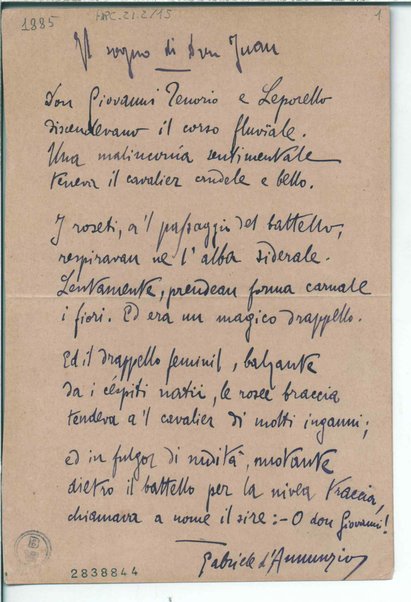 1885
ARC.21.2/15
1
Il sogno di Don Juan
Don Giovanni Tenorio e Leporello
discendevano il corso fluviale.
Una malinconia sentimentale
teneva il cavalier crudele e bello.
I roseti, a 'l passaggio del battello,
respiravan ne l' alba siderale.
Lentamente, prendean forma carnale
i fiori. Ed era un magico drappello.
Ed il drappello feminil, balzante
da i cespiti natii, le rosee braccia
tendeva a 'l cavalier di molti inganni;
ed in fulgor di nudità, nuotante
dietro il battello per la nivea traccia,
chiamava a nome il sire: – O don Giovanni!
Gabriele d'Annunzio
2838844